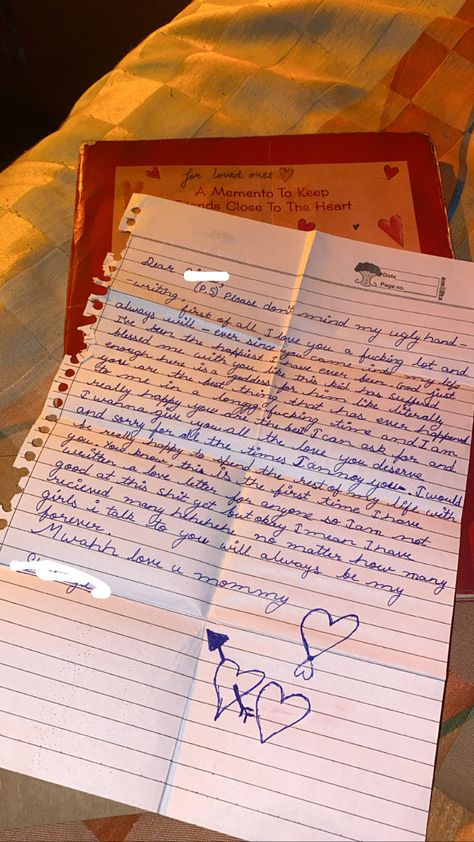 for loved ones
A Memento To Keep
Friends Close To The Heart
Date
Page no.
Dear
(P.S) Please don't mind my ugly hand-
-writing first of all I love you a fucking lot and
always will ever since you came into my life
I've been the happiest I have ever been God just
blessed me with you like this kid has suffered
enough here is a goddess for him like literally
you are the best thing that has ever happened
to me in a longgg fucking time and I am
really happy you are the best I can ask for and
I wanna give you all the love you deserve
and sorry for all the times I annoy you. I would
be really happy to spend the rest of my life with
you. You know this is the first time I have
written a love letter for anyone so I am not
good at this shit yet but okay I mean I have
recieved many hehehehe no matter how many
girls i talk to you will always be my
forever
Mwahh love u mommy